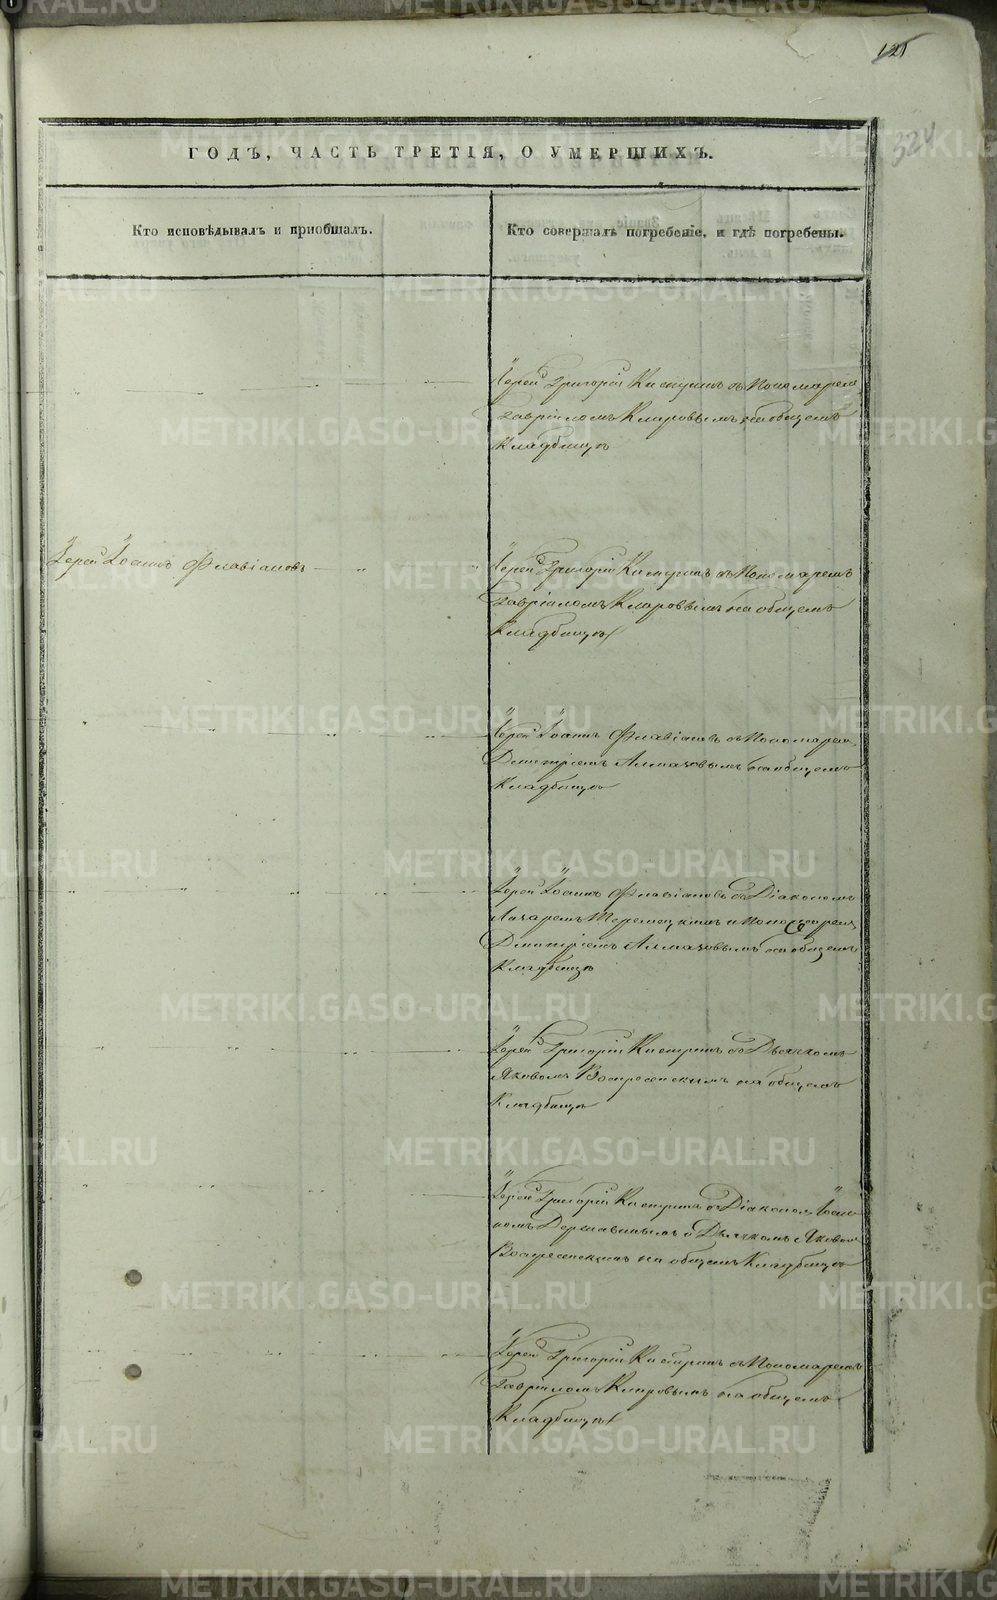 121
324
ГОДЪ, ЧАСТЬ ТРЕТІЯ, О УМЕРШИХЪ.
Кто исповѣдывалъ и приобщалъ.
Кто совершалъ погребеніе, и гдѣ погребены.
Іерей Григорій съ Пономаремъ
Гавріиломъ Кипровымъ на общемъ
Кладбищѣ
Іерей Іоаннъ Флавіановъ
Іерей Григорій съ Пономаремъ
Гавріиломъ Кипровымъ на общемъ
Кладбищѣ
Іерей Іоаннъ Флавіановъ съ Пономаремъ
Димитріемъ Алмазовымъ на общемъ
Кладбищѣ
Іерей Іоаннъ Флавіановъ съ Діакономъ
и Пономаремъ
Димитріемъ Алмазовымъ на общемъ
Кладбищѣ
Іерей Григорій съ Дьячкомъ
Яковомъ Воскресенскимъ на общемъ
Кладбищѣ
Іерей Григорій съ Діакономъ Іоан-
номъ Державинымъ и Дьячкомъ Яковомъ
Воскресенскимъ на общемъ Кладбищѣ
Іерей Григорій съ Пономаремъ
Гавріиломъ Кипровымъ на общемъ
Кладбищѣ
METRIKI.GASO-URAL.RU